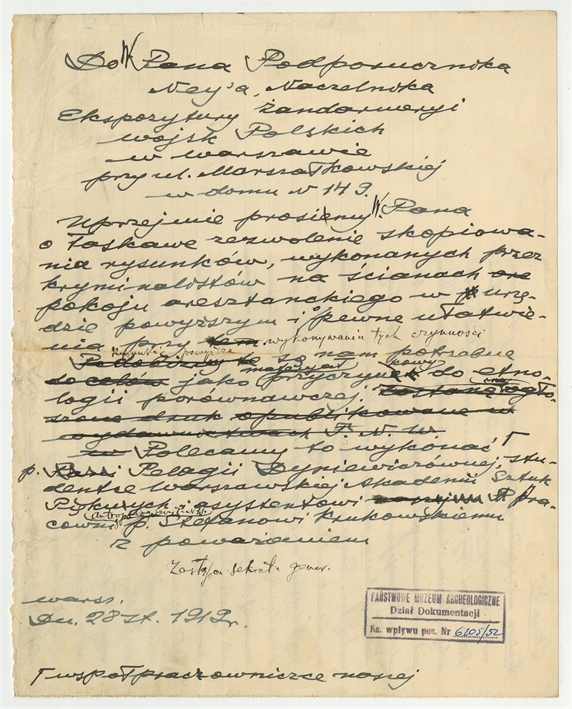 Do W Pana Podporucznika
Ney'a, Naczelnika
Ekspozytury żandarmeryi
wojsk Polskich
w warszawie
przy ul. Marszałkowskiej
w domu N 149.
Uprzejmie prosimy W. Pana
o łaskawe zezwolenie skopiowa-
nia rysunków, wykonanych przez
kryminalistów na ścianach
pokoju aresztanckiego w urzę-
dzie powyższym i pewne ułatwie-
nia przy tem wykonywaniu tych czynności
Rysunki powyższe
są nam potrzebne
jako materyał przyczynkowy do etno-
logii porównawczej,
szone druk opublikowane w
wydawnictwach T. N. W.
w Polecamy to wykonać Γ
p. Pelagii Dyniewiczównej, stu-
dentce Warszawskiej Akademii Sztuk
Pięknych i asystentowi pra-
cowni p. Stefanowi Krukowskiemu
Z poważaniem
Zastępca sekret. gener.
warsz.
Dn. 28 1919 r.
Γ współpracowniczce naszej
PAŃSTWOWE MUZEUM ARCHEOLOGICZNE
Dział Dokumentacji
Ks. wpływu poz. Nr 6105/52